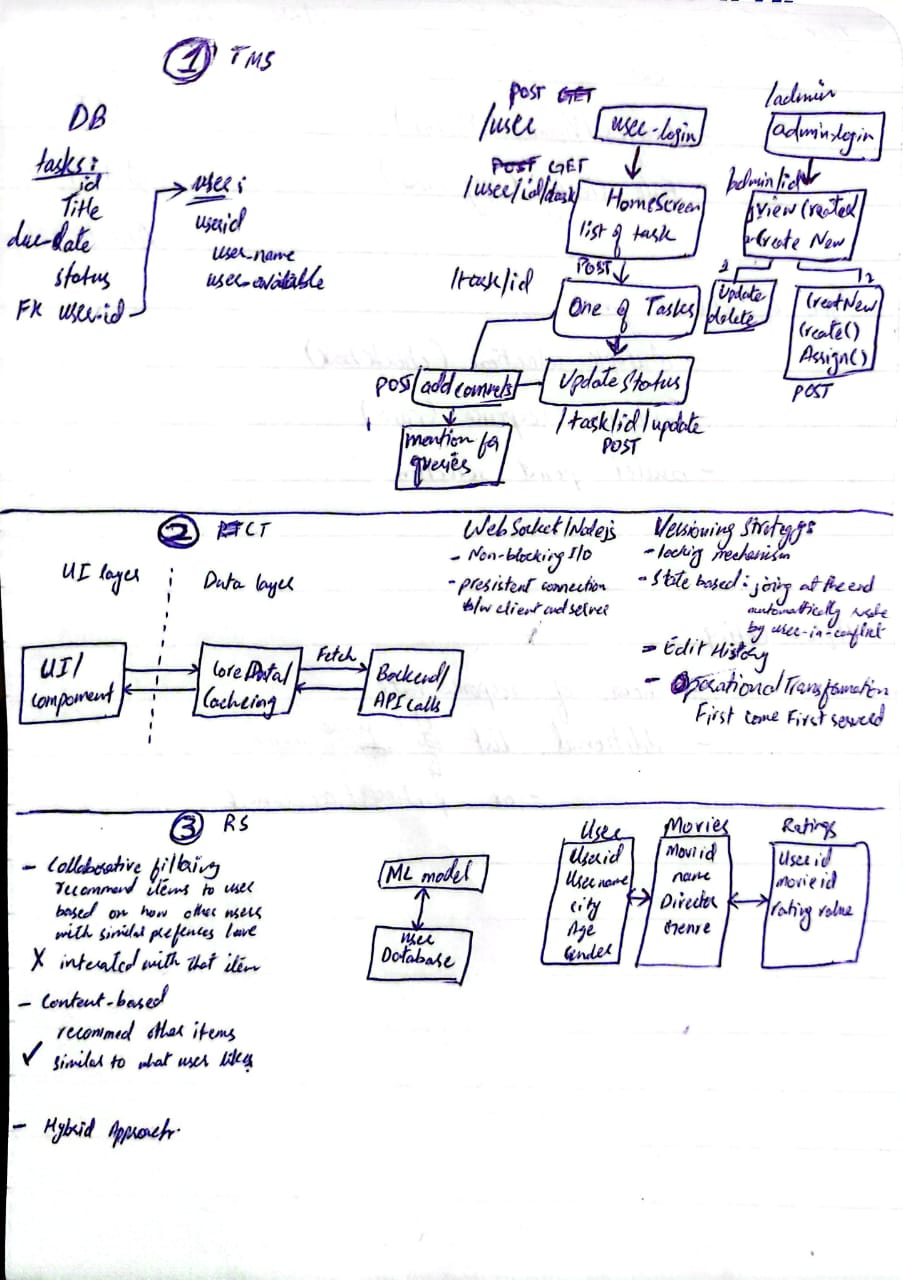 1 TMS
DB
tasks:
id
Title
due-date
status
FK user-id
user:
userid
user-name
user-available
POST GET
/user
user-login
POST GET
/user/id/task
HomeScreen
list of task
POST
/task/id
One of Tasks
POST
add commets
Update Status
/task/id/update
POST
mention for
queries
/admin
admin-login
/admin/id
1 view Created
2 Create New
1
Update
delete
2
CreatNew
Create()
Assign()
POST
2 CT
UI layer
Data layer
UI/
Compoment
Core Data/
Cacheing
Fetch
Backend/
API calls
WebSocket/Nodejs
- Non-blocking I/O
- presistent connection
b/w client and server
Versioning Strateggs
- locking mechanism
- State based: joing at the end
automatically
by user-in-conflict
- Edit History
- Operational Transfomation
First come First serverd
3 RS
- Collaborative filtering
recommend items to user
based on how other users
with similar prefences have
X interated with that item
- Content-based
recommed other items
✓ similar to what user likes
- Hybrid Approach.
ML model
user
Database
User
Userid
Username
City
Age
Gender
Movies
Moviid
name
Director
Genre
Ratings
Userid
movieid
rating value